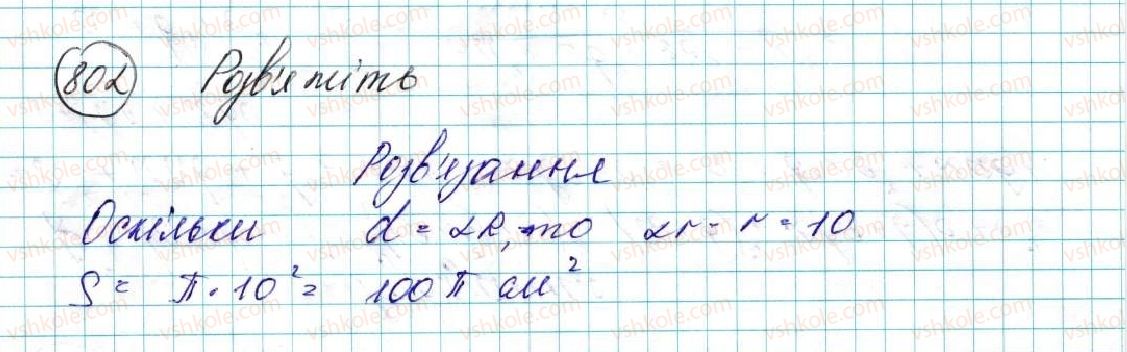 802 Розв'яжіть
Розв'язання
Оскільки d = 2R, то 2r - r = 10.
S = π · 10² = 100π см²